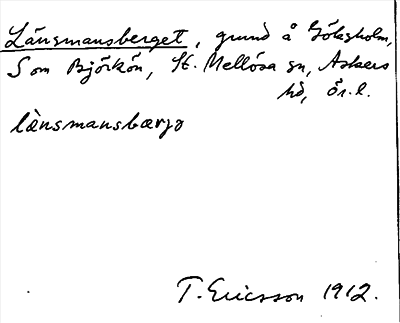 Länsmansberget, grund å Göksholm,
S om Björkön, St. Mellösa sn, Askers
hd, Ör. l.
lànsmansbærjo
T. Ericsson 1912.